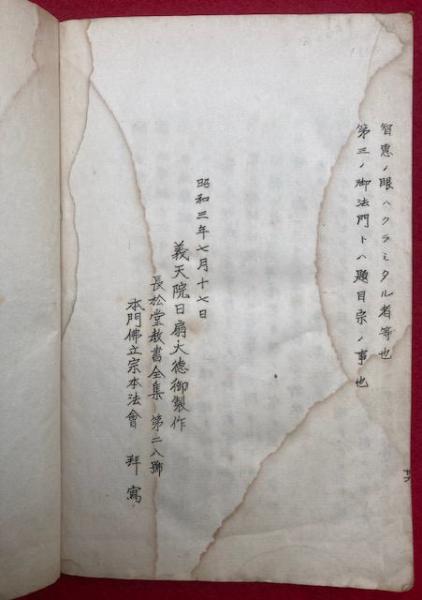 智惠ノ眼ハクラミタル者等也
第三ノ御法門トハ題目宗ノ事也
昭和三年七月十七日
義天院日扇大徳御製作
長松堂教書全集 第二八號
本門佛立宗本法會 拜寫